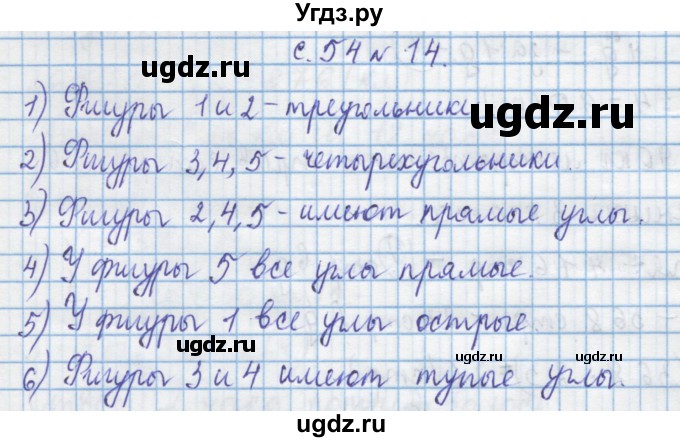 Угдз.ру
с. 54 № 14.
1) Фигуры 1 и 2 - треугольники
2) Фигуры 3, 4, 5 - четырехугольники.
3) Фигуры 2, 4, 5 - имеют прямые углы.
4) У фигуры 5 все углы прямые.
5) У фигуры 1 все углы острые
6) Фигуры 3 и 4 имеют тупые углы.
ugdz.ru
ugdz.ru
ugdz.ru
ugdz.ru
ugdz.ru
ugdz.ru